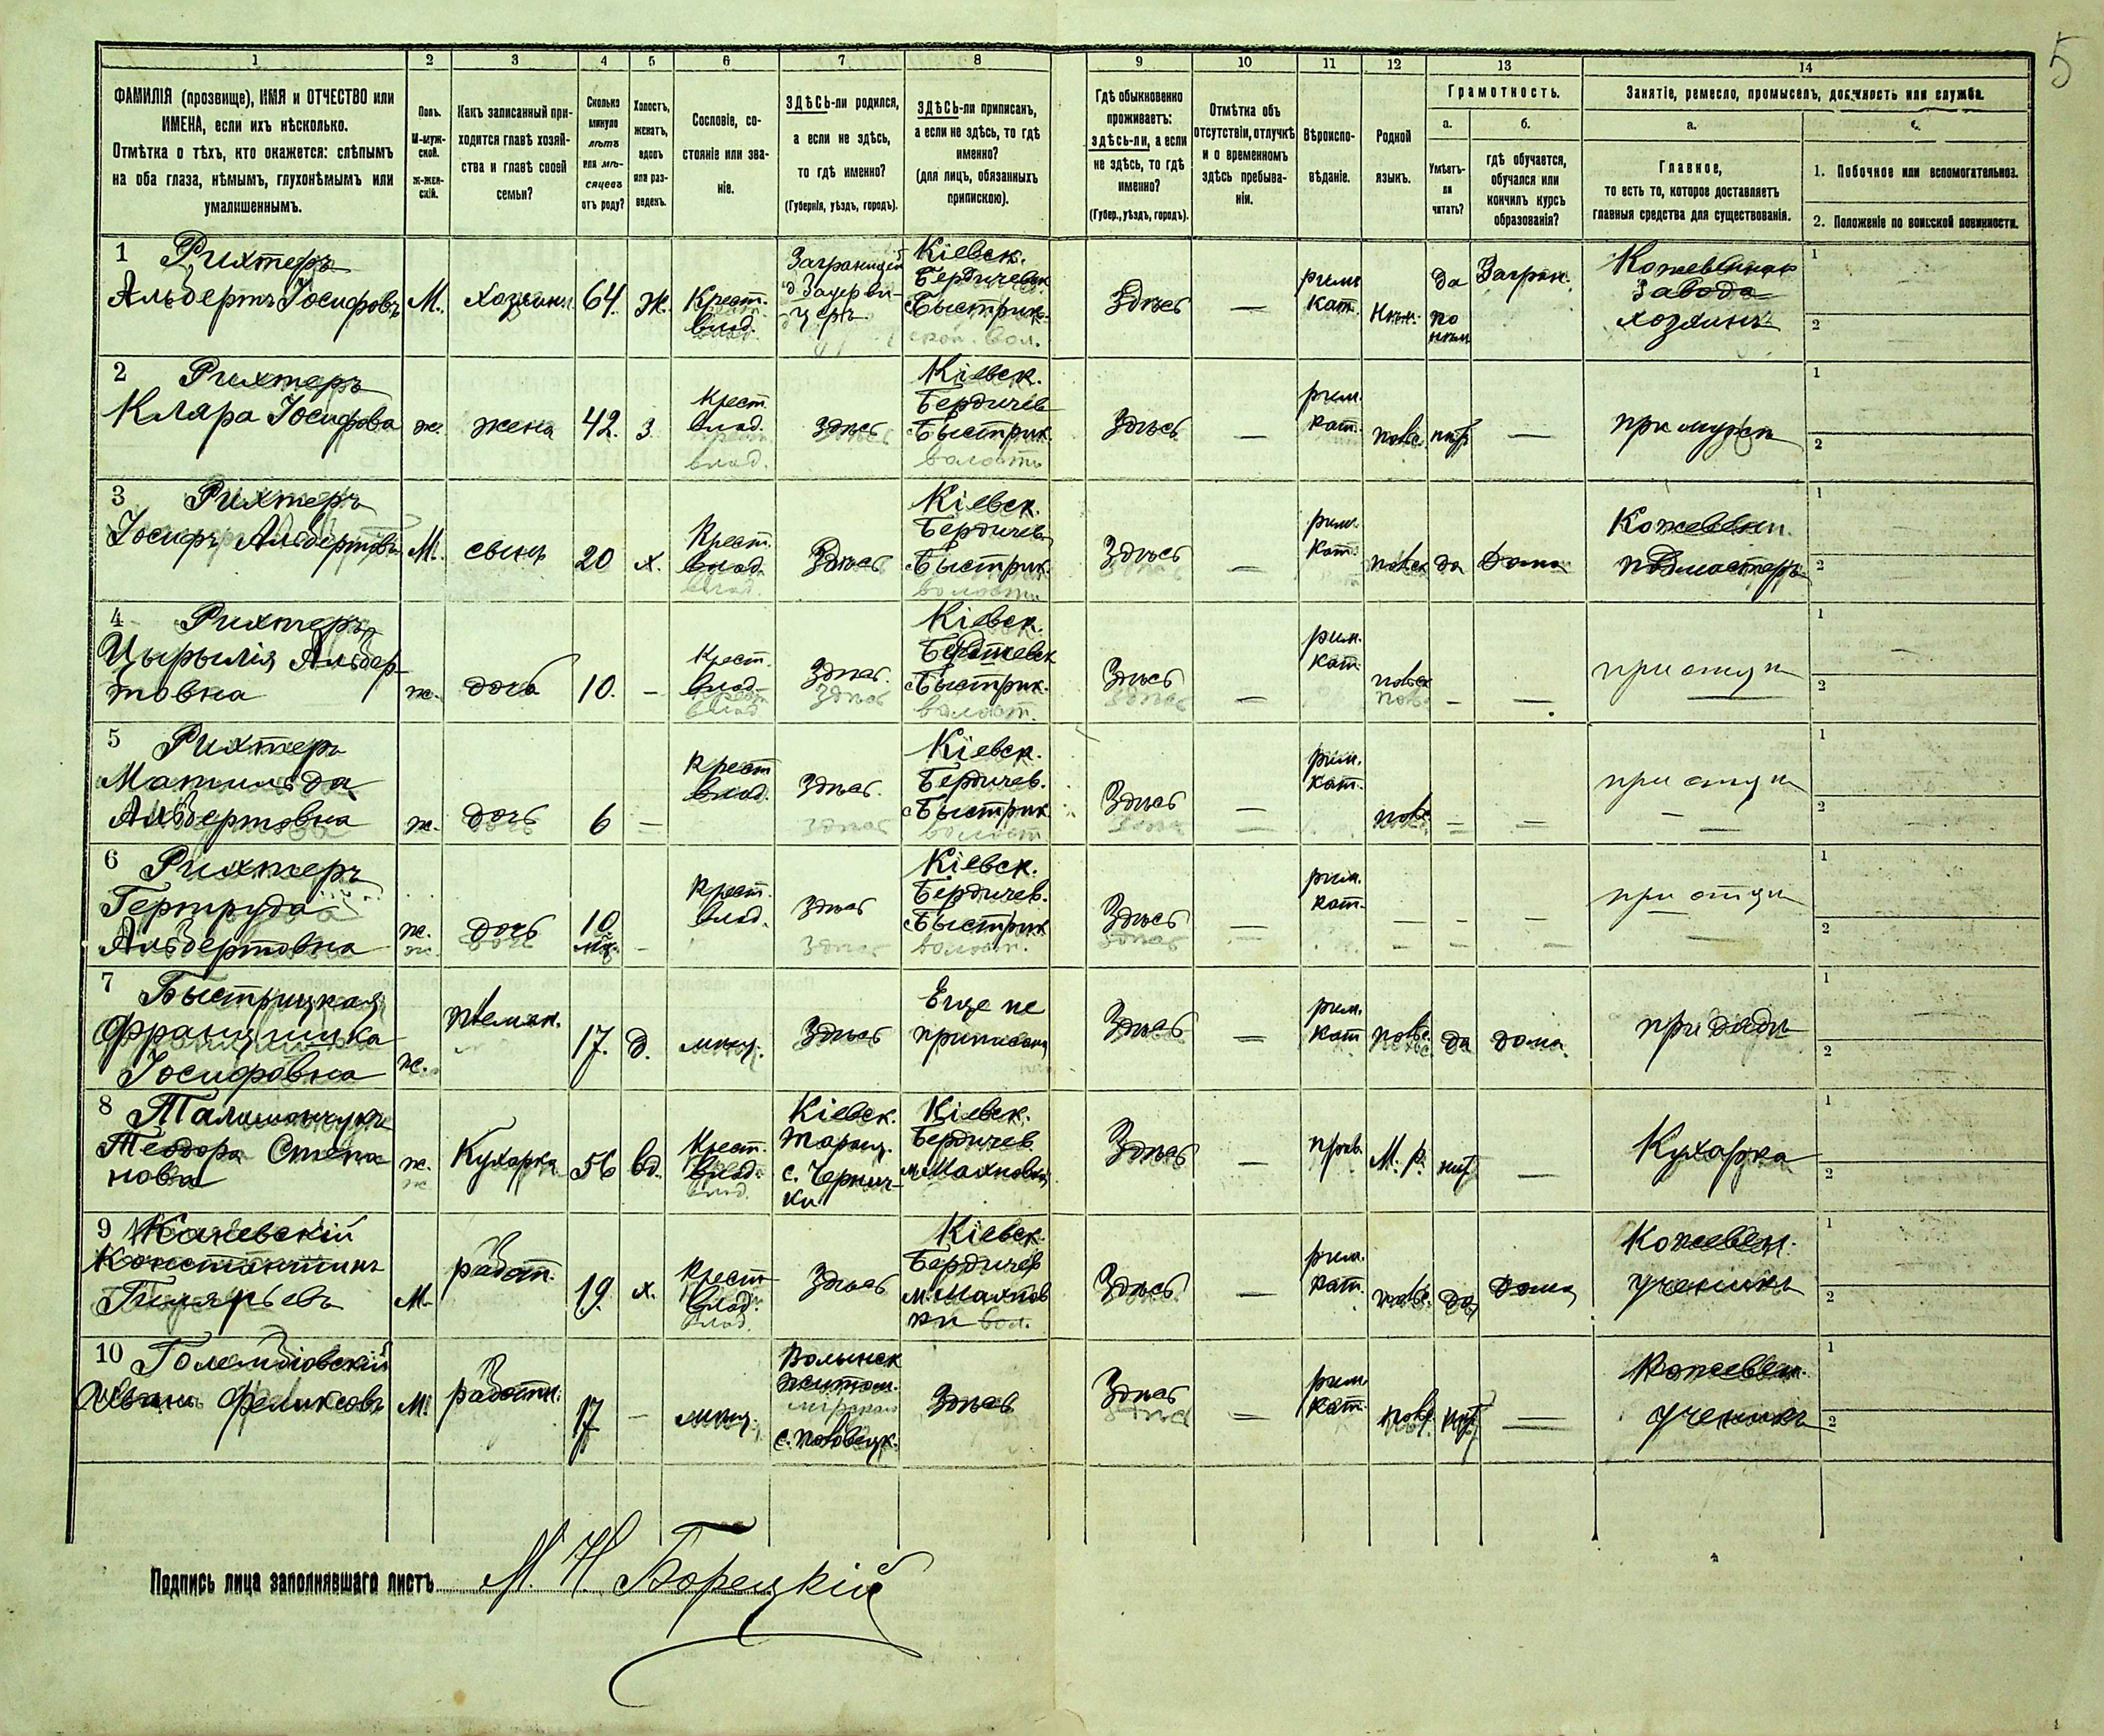 5
1 2 3 4 5 6 7 8 9 10 11 12 13 14
ФАМИЛІЯ (прозвище), ИМЯ и ОТЧЕСТВО или
ИМЕНА, если ихъ нѣсколько.
Отмѣтка о тѣхъ, кто окажется: слѣпымъ
на оба глаза, нѣмымъ, глухонѣмымъ или
умалишеннымъ.
Полъ.
М-муж-
ской.
ж-жен-
скій.
Какъ записанный при-
ходится главѣ хозяй-
ства и главѣ своей
семьи?
Сколько
минуло
лѣтъ
или мѣ-
сяцевъ
отъ роду?
Холостъ,
женатъ,
вдовъ
или раз-
веденъ.
Сословіе, со-
стояніе или зва-
ніе.
ЗДѢСЬ-ли родился,
а если не здѣсь,
то гдѣ именно?
(Губернія, уѣздъ, городъ).
ЗДѢСЬ-ли приписанъ,
а если не здѣсь, то гдѣ
именно?
(для лицъ, обязанныхъ
припискою).
Гдѣ обыкновенно
проживаетъ:
здѣсь-ли, а если
не здѣсь, то гдѣ
именно?
(Губер., уѣздъ, городъ).
Отмѣтка объ
отсутствіи, отлучкѣ
и о временномъ
здѣсь пребыва-
ніи.
Вѣроиспо-
вѣданіе.
Родной
языкъ.
Грамотность.
а.
Умѣетъ-
ли
читать?
б.
гдѣ обучается,
обучался или
кончилъ курсъ
образованія?
Занятіе, ремесло, промыселъ, должность или служба.
а.
Главное,
то есть то, которое доставляетъ
главныя средства для существованія.
1. Побочное или вспомогательное.
2. Положеніе по воинской повинности.
1 Рихтеръ
Альбертъ Іосифовъ
М.
хозяинъ
64.
ж.
Крест.
влад.
Заграницей
Кіевск.
Бердичевск
с. Быстрик.
ской. вол.
Здѣсь
—
римк
кат.
Нѣм.
да
по
нѣм
Загран.
Кожевеннаго
завода
хозяинъ
1
2
2 Рихтеръ
Клара Іосифова
ж.
жена
42.
з
Крест.
влад.
здѣсь
Кіевск.
Бердичев
с. Быстрик.
волость
Здѣсь
—
рим.
кат.
польс.
нѣт
—
при мужѣ
1
2
3 Рихтеръ
Іосифъ Альбертовъ
М.
сынъ
20
х.
Крест.
влад.
Здѣсь
Кіевск.
Бердичев
с. Быстрик.
волости
Здѣсь
—
рим.
кат.
польск
да
дома
Кожевен.
подмастеръ
1
2
4 Рихтеръ
Цырылія Альбер-
товна
ж.
дочь
10.
—
Крест.
влад.
Здѣсь.
Кіевск.
Бердичевск
с. Быстрик.
волост.
Здѣсь
—
рим.
кат.
польск
—
—
при отцѣ
1
2
5 Рихтеръ
Матильда
Альбертовна
ж.
дочь
6
—
Крест
влад.
Здѣсь.
Кіевск.
Бердичев.
с. Быстрик
волост
Здѣсь
—
рим.
кат.
польс
—
—
при отцѣ
1
2
6 Рихтеръ
Гертруда
Альбертовна
ж.
дочь
10
мѣ.
—
Крест.
влад.
Здѣсь
Кіевск.
Бердичев.
с. Быстрик
волост.
Здѣсь
—
рим.
кат.
—
—
—
при отцѣ
1
2
7 Быстрицкая
Францишка
Іосифовна
ж.
племян.
17.
д.
мѣщ.
Здѣсь
Еще не
приписана
Здѣсь
рим.
кат
польс.
да
дома.
при дядѣ
1
2
8
Теодора Степа
нова
ж.
Кухарка
56
вд.
Крест.
влад.
Кіевск.
Таращ.
с. Чернич-
ки
Кіевск.
Бердичев
м. Махновки
Здѣсь
—
прав.
М. р.
нѣт
—
Кухарка
1
2
9 Каневскій
Константинъ
Гиляріевъ
М.
работ.
19.
х.
Крест
влад.
Здѣсь
Кіевск.
Бердичев
м. Махнов
ки вол.
Здѣсь
—
рим.
кат.
польс.
да
дома
Кожевен.
ученикъ
1
2
10
Иванъ Феликсовъ
М.
работн.
17
—
мѣщ.
Волынск
житом.
Здѣсь
Здѣсь
—
рим.
кат.
нѣт
—
Кожевен.
ученикъ
1
2
Подпись лица заполнявшаго листъ М. Н. Борецкій